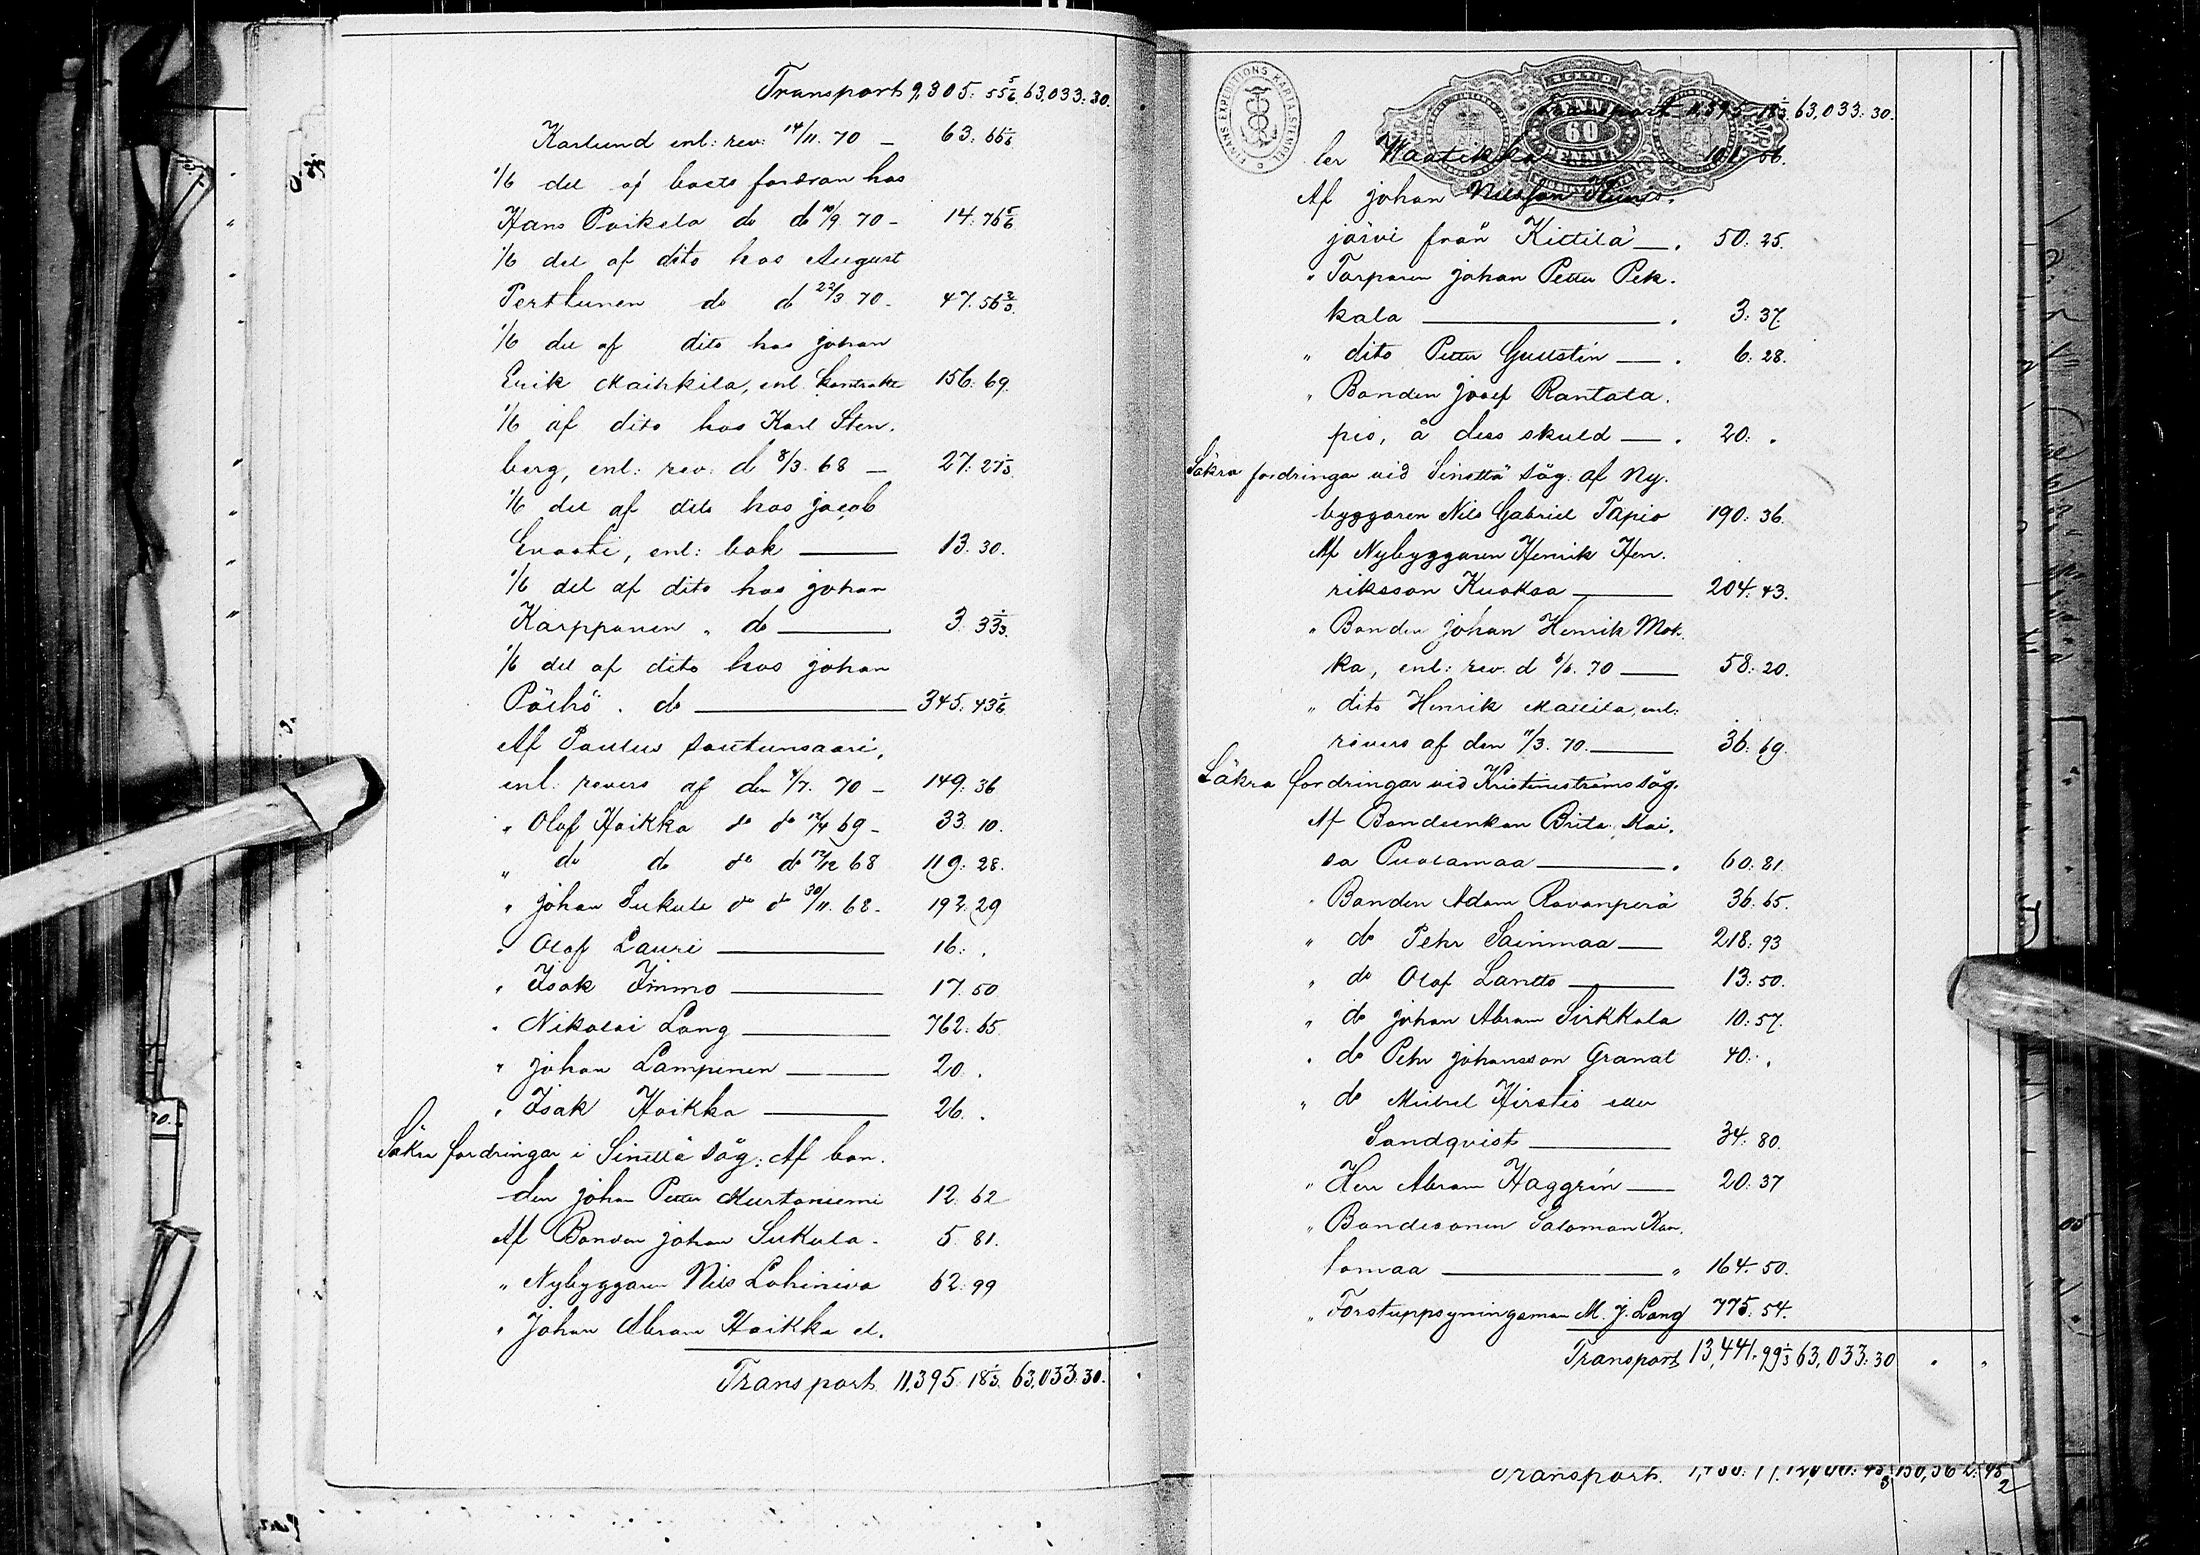 Transport 9,305: 55 5/6 63,033: 30.
Karlund enl: rev: 14/11. 70 — 63. 66 1/6
1/6 del af bosts fordran hos
Hans Poikela do do 10/9 70 — 14. 76 5/6
1/6 del af dito hos August
Perttunen do do 22/3 70 — 47. 56 2/3
1/6 del af dito hos Johan
Erik Maihkila, enl. kontrakt 156. 69.
1/6 af dito hos Karl Sten.
berg, enl: rev: d 8/3. 68 — 27: 27 1/3
1/6 del af dito hos Jacob
enl: bok — 13. 30.
1/6 del af dito hos Johan
Karppanen " do — 3. 33 1/3
1/6 del af dito hos Johan
Pöihö. do — 345: 43 1/6
Af Paulus Soutunsaari,
enl. revers af den 4/7. 70 — 149: 36
" Olof Hoikka do do 12/4 69 — 33. 10.
" do do do do 12/12 68 119: 28.
" Johan Sukula do do 30/11. 68 — 192. 29
" Olof Lauri — 16: .
" Isak Immo — 17. 50
" Nikolai Lang — 762: 65
" Johan Lampinen — 20. .
" Isak Hoikka — 26. .
Säkra fordringar i Sinettä såg: Af bon.
den Johan Petter Kurtoniemi 12. 62
Af Bonden Johan Sukula — 5. 81.
" Nybyggaren Nils Lohiniva 62. 99
" Johan Abram Hoikka el.
Transport 11,395. 18 1/3 63,033: 30.
FINANS EXPEDITIONS KARTA STEMPEL
60
PENNIÄ
Transport 11,395 18 1/3 63,033: 30.
ler Waatikka 101. 56.
Af Johan Nilsson Kuus.
järvi från Kittilä — 50: 25.
" Torparen Johan Petter Pek.
kala — 3: 37.
" dito Petter Guustin — 6: 28.
" Bonden Josef Rantala.
pio, å dess skuld — 20: .
Säkra fordringar vid Sinettä såg: af Ny.
byggaren Nils Gabriel Tapio 190: 36.
Af Nybyggaren Henrik Hen.
riksson Kuoksa — 204. 43.
" Bonden Johan Henrik Mok.
ka, enl: rev. d 6/6. 70 — 58: 20.
" dito Henrik Mattila, enl:
revers af den 11/3. 70. — 36: 69.
Säkra fordringar vid Kristineströms såg.
Af Bondeenkan Brita Kai.
sa Puolamaa — 60: 81.
" Bonden Adam Rovanperä 36: 65.
" do Pehr Sainmaa — 218: 93
" do Olof Lantto — 13: 50.
" do Johan Abram Sirkkala 10: 57.
" do Pehr Johansson Granat 40: .
" do Mickel Hirstiö eller
Sandqvist — 34: 80.
" Herr Abram Häggrén — 20: 37
" Bondesonen Salomon Kan.
lomaa — " 164. 50.
" Forstuppsyningsman M. J. Lang 775: 54.
Transport 13,441. 99 1/3 63,033: 30
Transport.